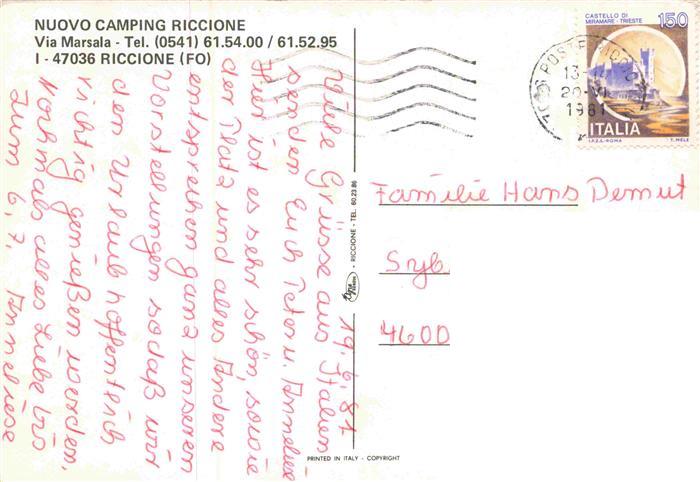 NUOVO CAMPING RICCIONE
Via Marsala - Tel. (0541) 61.54.00 / 61.52.95
I - 47036 RICCIONE (FO)
CASTELLO DI
MIRAMARE - TRIESTE
150
ITALIA
I.P.Z.S. - ROMA
T. MELE
POSTE
13
20-VI
1981
19.6.81
Viele Grüsse aus Italien
senden Euch Peter u. Anneliese
Hier ist es sehr schön, sowie
der Platz und alles Andere
entsprechen ganz unseren
Vorstellungen sodaß wir
den Urlaub hoffentlich
richtig genießen werden.
Nochmals alles Liebe bis
zum 6.7. Anneliese
Familie Hans Demut
4600
- RICCIONE - TEL. 60.23.86
PRINTED IN ITALY - COPYRIGHT